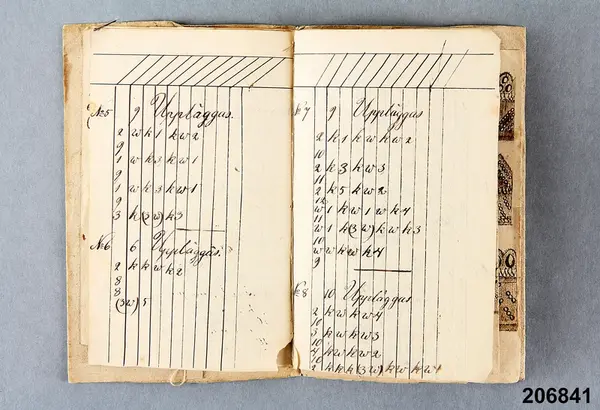 №5 9 Uppläggas.
2 w k 1 k w 2
9
1 w k 3 k w 1
9
1 w k 3 k w 1
9
3 k (3w) k 3
№6 6 Uppläggas.
2 k k w k 2
8
8
(3w) 5
№7 9 Uppläggas
2 k 1 k w k w 2
10
2 k 3 k w 3
11
2 k 5 k w 2
12
w 1 k w 1 w k 4
11
w 1 k (3w) k w k 3
10
w w k w k 4
9
№8 10 Uppläggas
2 k w k w 4
10
3 k w k w 3
10
4 k w k w 2
10
2 k k k (3w) k w k w 1
206841